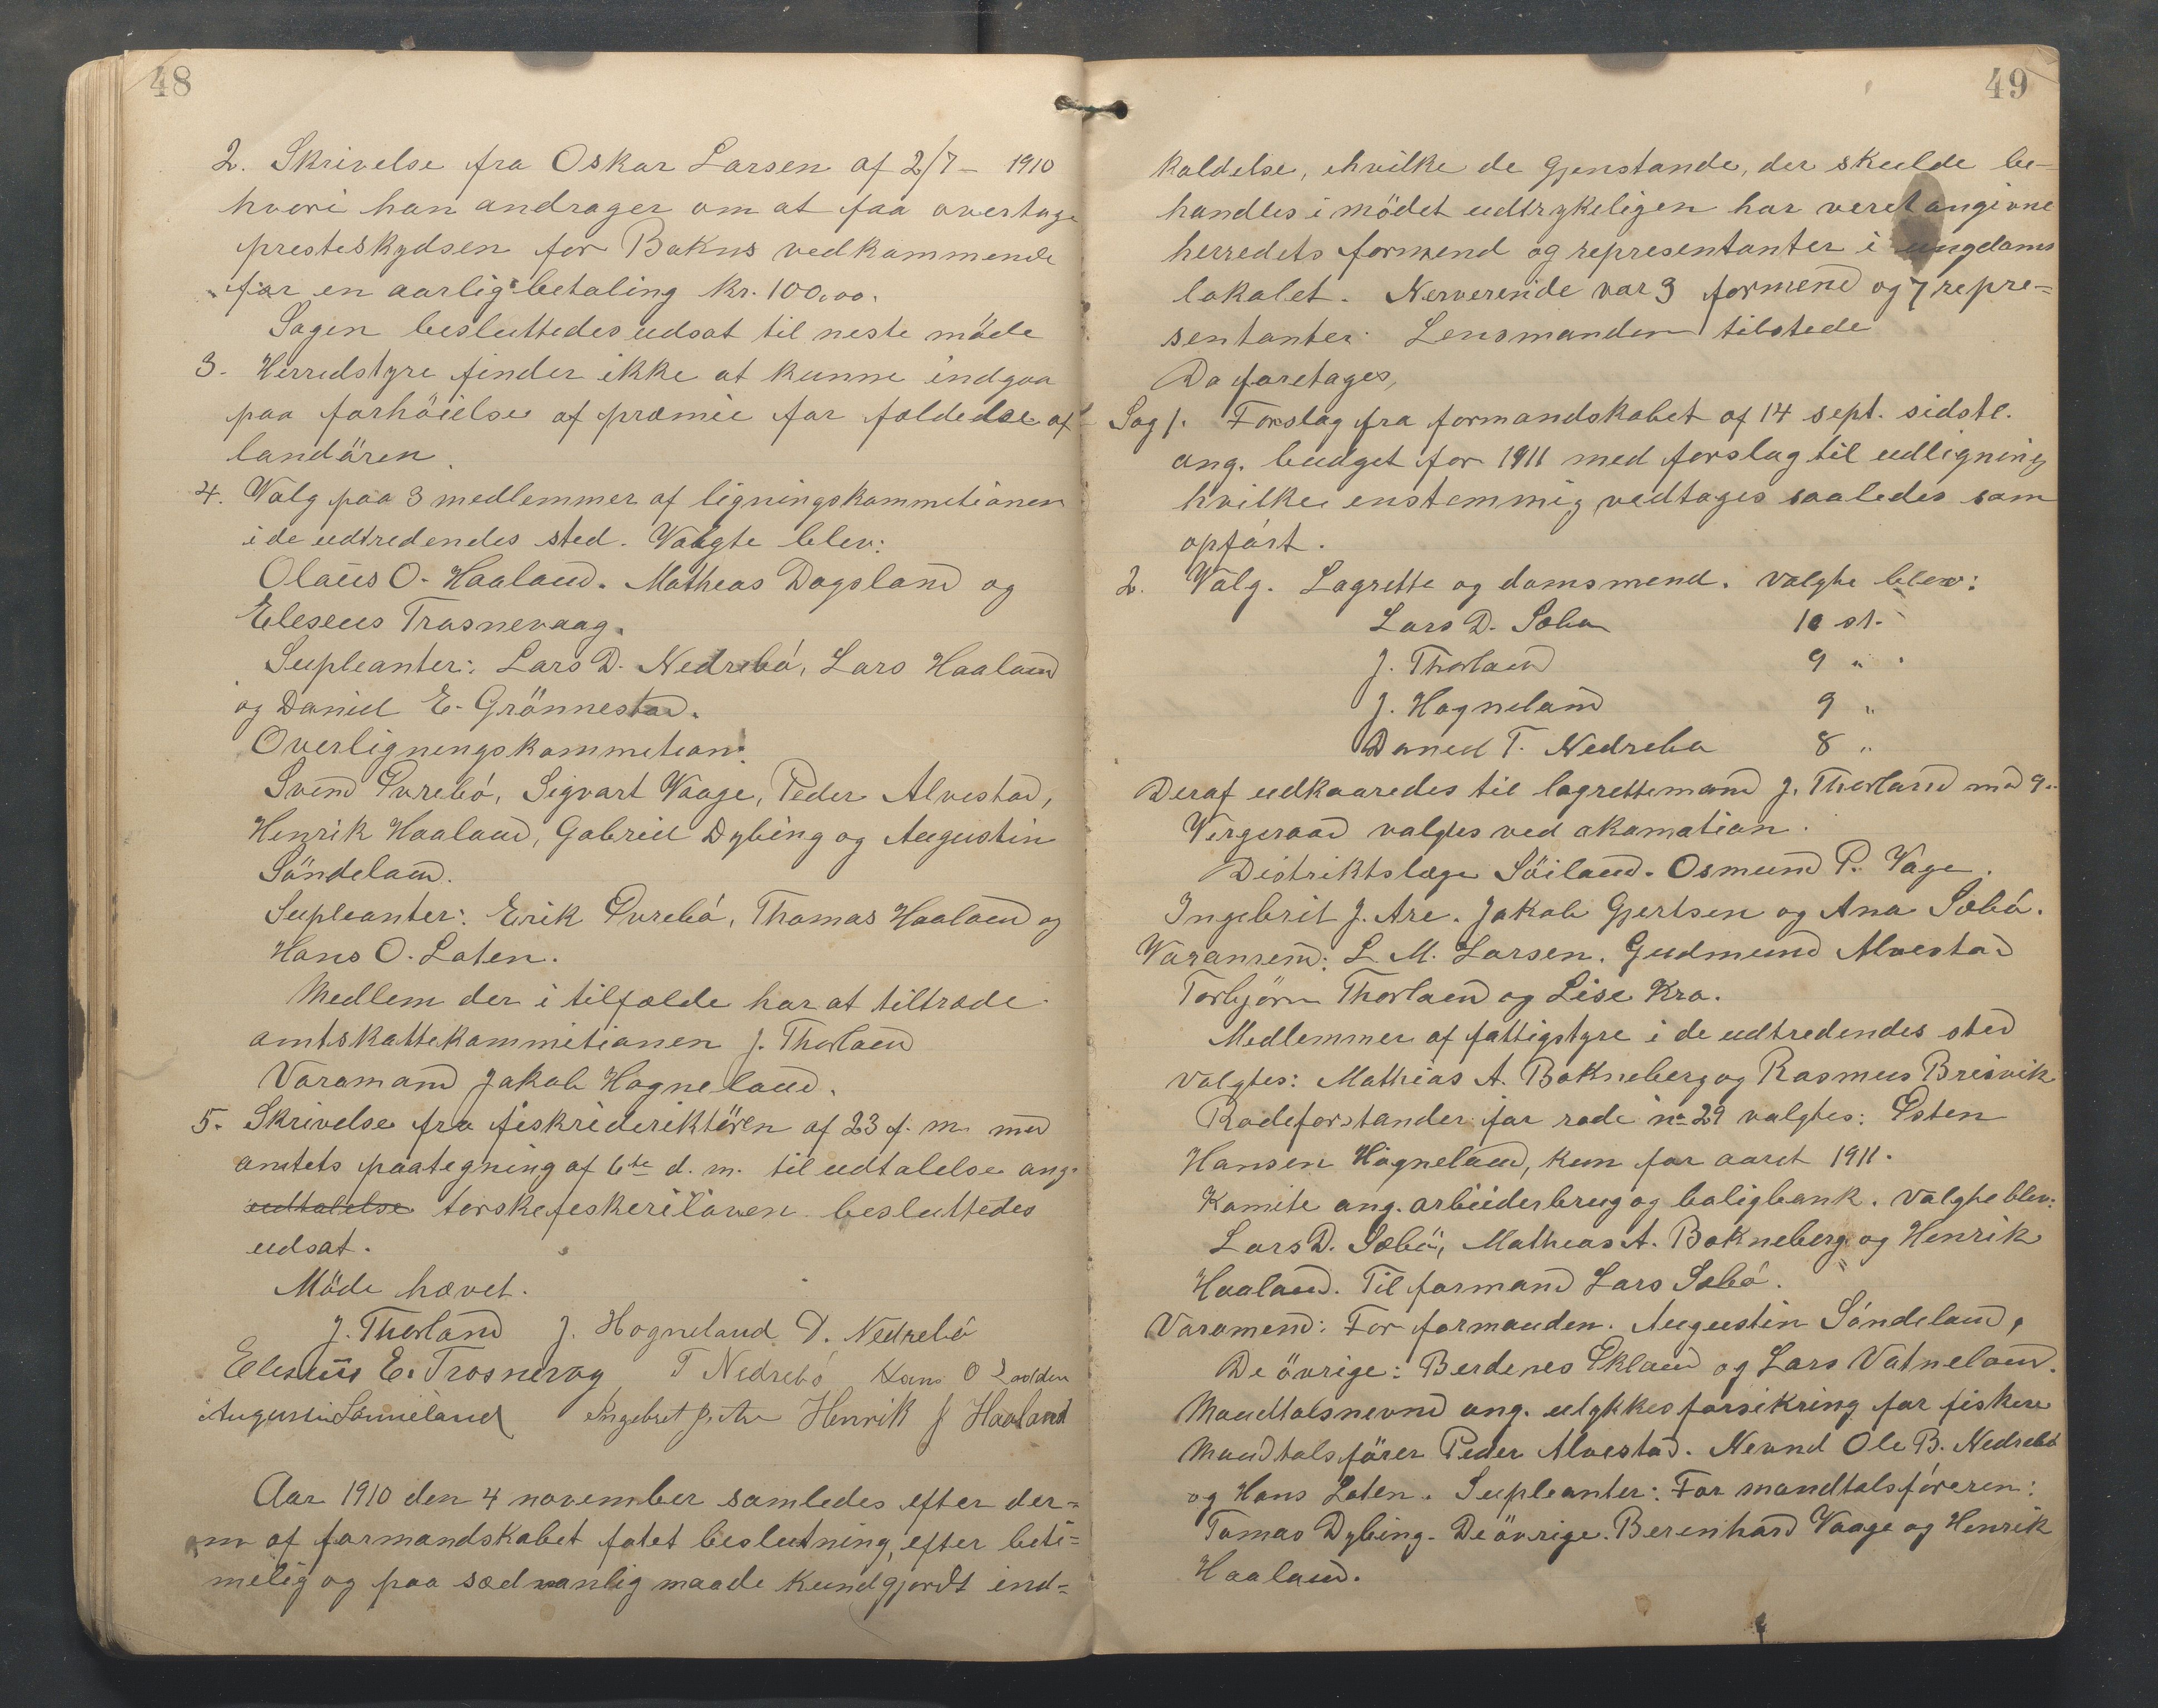 48
2. Skrivelse fra Oskar Larsen af 2/7 - 1910
hvori han andrager om at faa overtage
presteskydsen for Bokns vedkommende
for en aarlig betaling kr. 100,00.
Sagen besluttedes udsat til neste möde
3. Herredstyre finder ikke at kunne indgaa
paa forhöielse af præmie for foldedse af
landören
4. Valg paa 3 medlemmer af ligningskommitionen
i de udtredendes sted. Valgte blev:
Olaus O. Haaland. Mathias Dagsland og
Eleseus Trosnevaag.
Supleanter: Lars D. Nedrebó, Lars Haaland
og Daniel E. Grönnestad.
Overligningskommition:
Svend Övrebó, Sigvart Vaage, Peder Alvestad,
Henrik Haaland, Gabriel Dybing og Augustin
Sóndeland.
Supleanter: Erik Övrebó, Thomas Haaland og
Hans O. Loten.
Medlem der i tilfælde har at tiltræde
amtskattekommitionen J. Thorland
Varamand Jakob Hogneland.
5. Skrivelse fra fiskrideriktören af 23 f. m. med
amtets paategning af 6te d. m. til udtalelse ang.
udtalelse torskefiskeriloven besluttedes
udsat.
Möde hævet.
J. Thorland J. Hogneland D. Nedrebó
Eleseus E. Trosnevag T Nedrebó Hans O Loden
Augustin Sönneland Ingebret J. Are Henrik J Haaland
Aar 1910 den 4 november samledes efter der-
om af formandskabet fatet beslutning, efter beti-
melig og paa sædvanlig maade kundgjordt ind-
49
kaldelse, i hvilke de gjenstande, der skulde be-
handles i mödet udtrykeligen har veret angivne
herredets formend og representanter i ungdoms
lokalet. Nerverende var 3 formend og 7 repre-
sentanter. Lensmanden tilstede
Da foretages,
Sag 1. Forslag fra formandskabet af 14 sept. sidstl.
ang. budget for 1911 med forslag til udligning
hvilke enstemmig vedtages saaledes som
opfört.
2. Valg. Lagrette og domsmend. Valgte blev:
Lars D. Sæbø 10 st.
J. Thorland 9 "
J. Hogneland 9 "
Daniel T. Nedrebø 8 "
Deraf udkaaredes til lagrettemand J. Thorland med 9 "
Vergeraad valgtes ved akamation.
Distriktslæge Söiland. Osmund P. Vage.
Ingebrit J. Are. Jakob Gjertsen og Ana Sæbó.
Varamend: L. M. Larsen. Gudmund Alvestad
Torbjörn Thorland og Lise Kro.
Medlemmer af fattigstyre i de udtredendes sted
valgtes: Mathias A. Bokneberg og Rasmus Breivik
Rodeforstander for rode no 29 valgtes: Östen
Hansen Hogneland, kun for aaret 1911.
Komite ang. arbeiderbrug og boligbank. Valgte blev:
Lars D. Sæbó, Mathias A. Bokneberg og Henrik
Haaland. Til formand Lars Sæbó.
Varamend: For formanden. Augustin Sóndeland,
De övrige: Berdenes Ökland og Lars Vatneland.
Mandtalsnevnd ang. ulykkesforsikring for fiskere
Mandtalsförer Peder Alvestad. Nevnd Ole B. Nedrebó
og Hans Loten. Supleanter: For mandtalsföreren:
Tomas Dybing. De övrige. Berenhard Vaage og Henrik
Haaland.